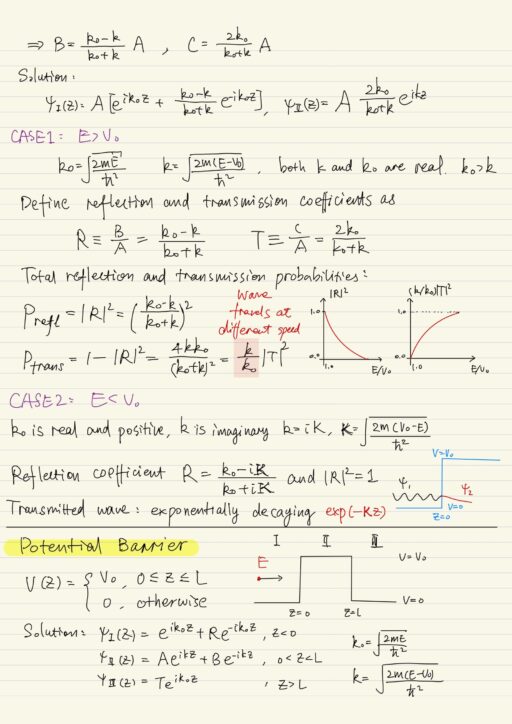 ⇒ B = (k₀-k)/(k₀+k) A , C = 2k₀/(k₀+k) A
Solution:
ψ_I(z) = A [e^{ik₀z} + (k₀-k)/(k₀+k) e^{-ik₀z}], ψ_II(z) = A 2k₀/(k₀+k) e^{ikz}
CASE1: E>V₀
k₀ = √(2mE/ħ²) k = √(2m(E-V₀)/ħ²) , both k and k₀ are real. k₀>k
Define reflection and transmission coefficients as
R ≡ B/A = (k₀-k)/(k₀+k) T ≡ C/A = 2k₀/(k₀+k)
Total reflection and transmission probabilities:
P_refl = |R|² = ((k₀-k)/(k₀+k))²
P_trans = 1-|R|² = 4kk₀/(k₀+k)² = k/k₀ |T|²
wave
travels at
different speed
|R|²
1.0
0.0
1.0
E/V₀
(k/k₀)|T|²
1.0
0.0
1.0
E/V₀
CASE2: E<V₀
k₀ is real and positive, k is imaginary k=iK, K=√(2m(V₀-E)/ħ²)
Reflection coefficient R = (k₀-iK)/(k₀+iK) and |R|²=1
Transmitted wave: exponentially decaying exp(-Kz)
V=V₀
ψ₁
ψ₂
V=0
z=0
Potential Barrier
V(z) = { V₀, 0≤z≤L
0, otherwise
I II III
E
V=V₀
V=0
z=0 z=L
Solution: ψ_I(z) = e^{ik₀z}+Re^{-ik₀z}, z<0
ψ_II(z) = Ae^{ikz}+Be^{-ikz}, 0<z<L
ψ_III(z) = Te^{ik₀z} , z>L
k₀ = √(2mE/ħ²)
k = √(2m(E-V₀)/ħ²)